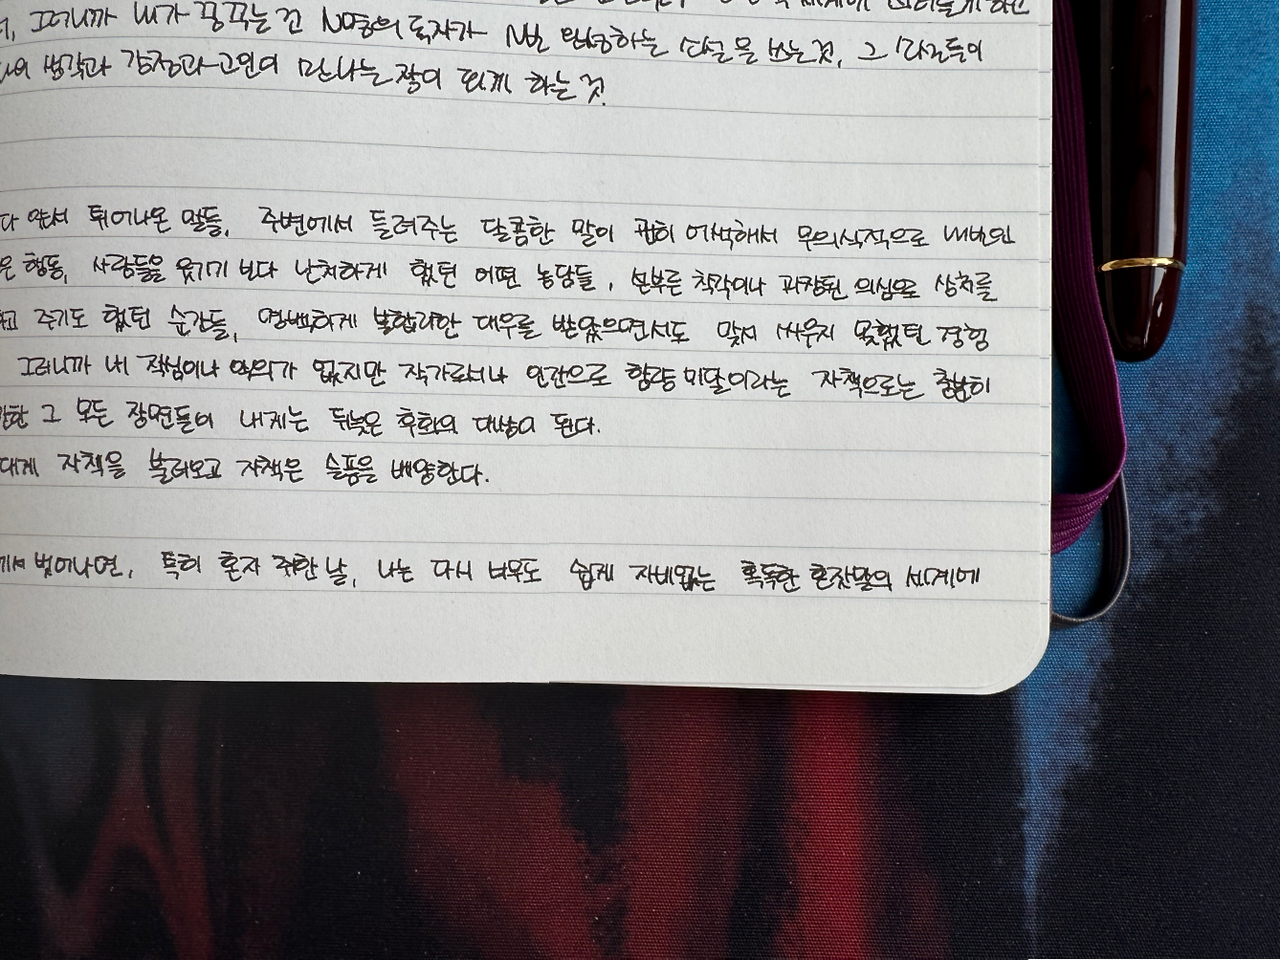 그러니까 내가 꿈꾸는 건 N명의 독자가 N번 완성하는 소설을 쓰는 것, 그 소설들이
생각과 감정과 고민이 만나는 장이 되게 하는 것
앞서 튀어나온 말들, 주변에서 들려주는 달콤한 말이 괜히 어색해서 무의식적으로 내보인
행동, 사람들을 웃기기 보다 난처하게 했던 어떤 농담들, 섣부른 착각이나 과장된 의심으로 상처를
주기도 했던 순간들, 명백하게 불합리한 대우를 받았으면서도 맞서 싸우지 못했던 경험
그러니까 내 진심이나 악의가 없지만 작가로서나 인간으로 함량 미달이라는 자책으로는 충분히
그 모든 장면들이 내게는 뒤늦은 후회의 대상이 된다.
자책을 불러오고 자책은 슬픔을 배양한다.
벗어나면, 특히 혼자 취한 날, 나는 다시 너무도 쉽게 자비없는 혹독한 혼잣말의 세계에